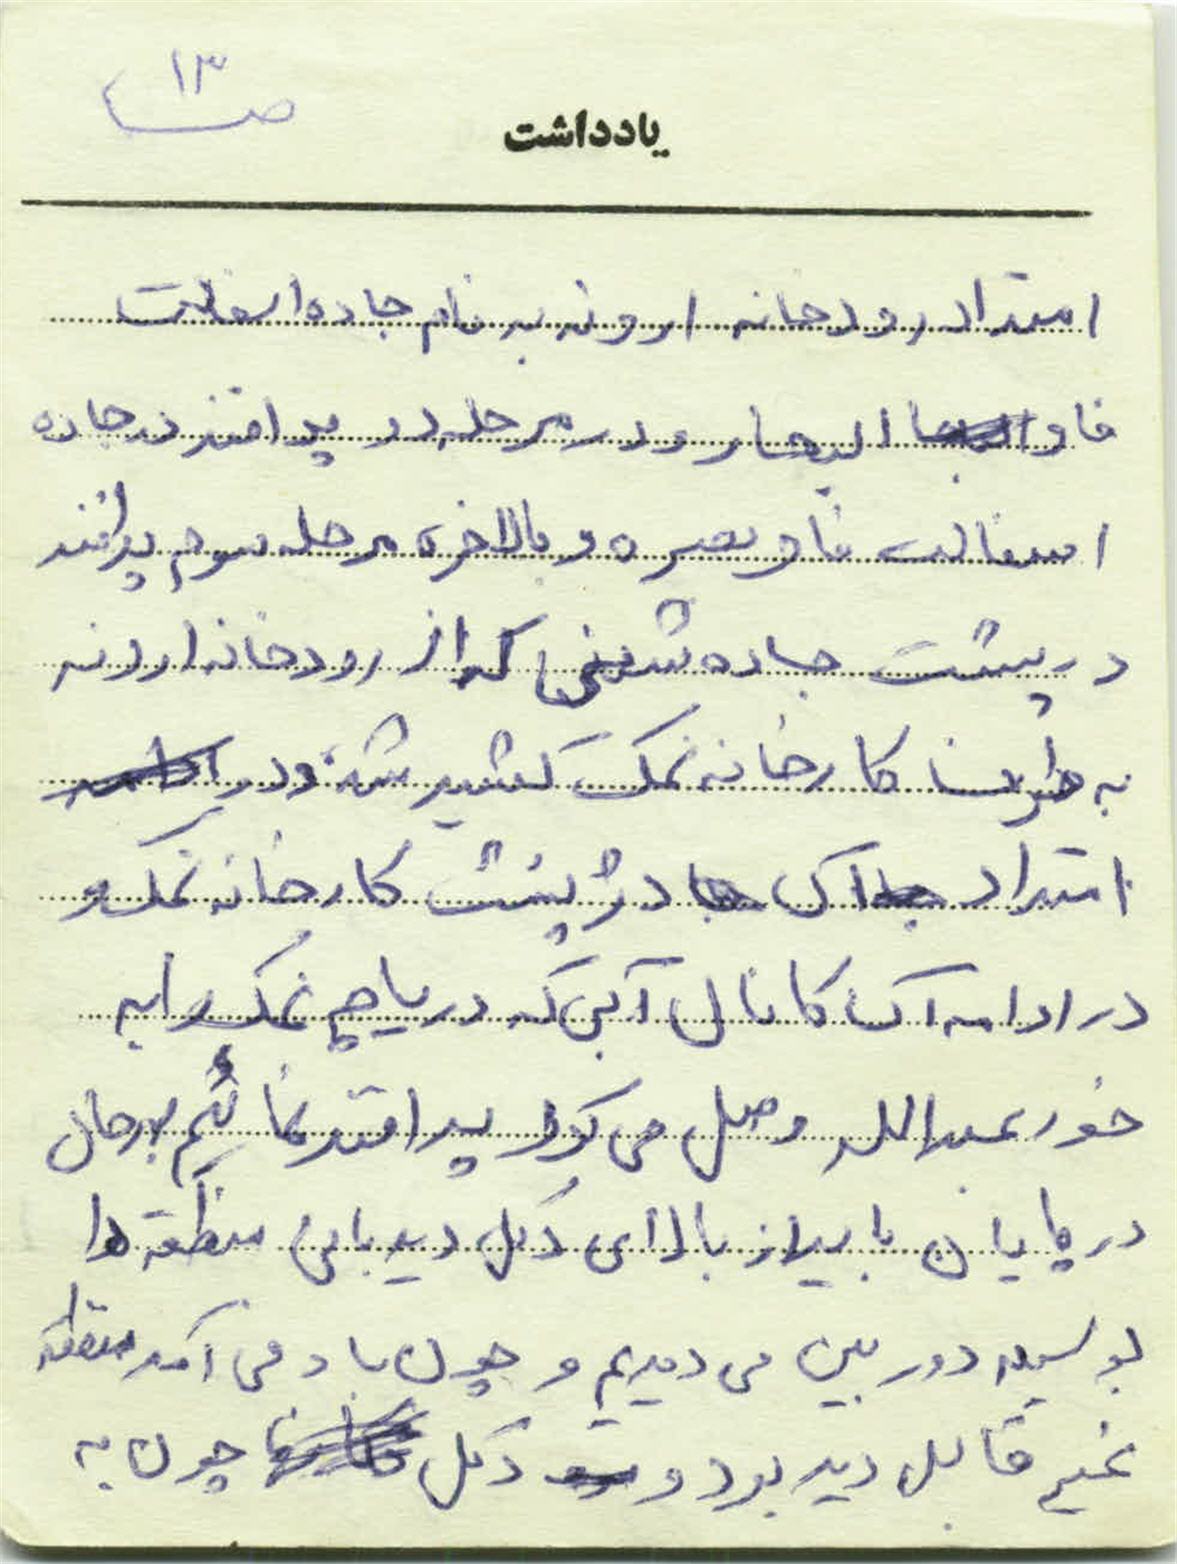 ص ۱۳
یادداشت
امتداد رودخانه اروند به نام جاده اسفالت
فاو البحار و در مرحله دو پدافند در جاده
اسفالت فاو بصره و بالاخره مرحله سوم پدافند
در پشت جاده شنی که از رودخانه اروند
به طرف کارخانه نمک کشیده شده و در
امتداد آن در پشت کارخانه نمک و
در ادامه آن کانال آبی که دریاچه نمک را به
خور عبدالله وصل می کرد پدافند نمائیم بهرحال
در پایان با پیاز بالای دکل دیدبانی منطقه را
بوسیله دوربین می دیدیم و چون باد می آمد منطقه
غیر قابل دید بود و دکل چون به